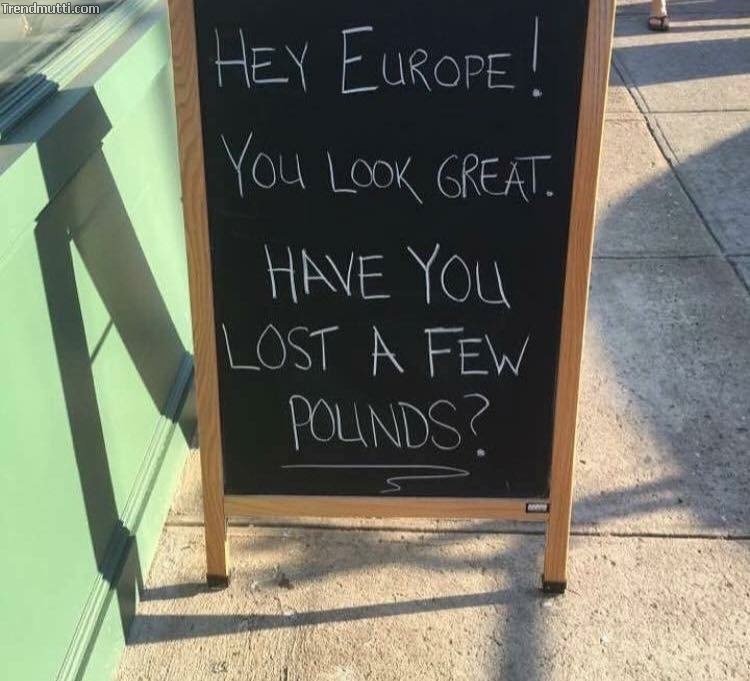 Trendmutti.com
HEY EUROPE!
YOU LOOK GREAT.
HAVE YOU
LOST A FEW
POUNDS?